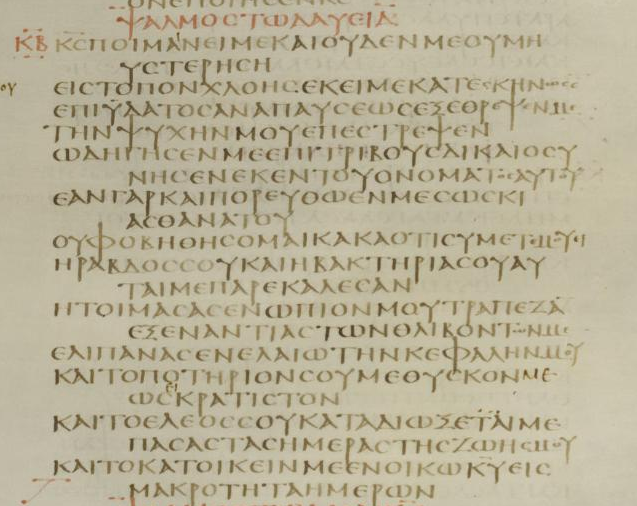 ΟΝΕΠΟΙΗCΕΝΚC
ΨΑΛΜΟCΤΩΔΑΥΕΙΔ
ΚΒ ΚCΠΟΙΜΑΝΕΙΜΕΚΑΙΟΥΔΕΝΜΕΟΥΜΗ
ΥCΤΕΡΗCΗ
ΟΥ ΕΙCΤΟΠΟΝΧΛΟΗCΕΚΕΙΜΕΚΑΤΕCΚΗΝ
ΕΠΙΫΔΑΤΟCΑΝΑΠΑΥCΕΩCΕΞΕΘΡΕΨΕΝΜΕ
ΤΗΝΨΥΧΗΝΜΟΥΕΠΕCΤΡΕΨΕΝ
ΩΔΗΓΗCΕΝΜΕΕΠΙΤΡΙΒΟΥCΔΙΚΑΙΟCΥ
ΝΗCΕΝΕΚΕΝΤΟΥΟΝΟΜΑΤΟCΑΥΤΟΥ
ΕΑΝΓΑΡΚΑΙΠΟΡΕΥΘΩΕΝΜΕCΩCΚΙ
ΑCΘΑΝΑΤΟΥ
ΟΥΦΟΒΗΘΗCΟΜΑΙΚΑΚΑΟΤΙCΥΜΕΤΕΜΟΥΙ
ΗΡΑΒΔΟCCΟΥΚΑΙΗΒΑΚΤΗΡΙΑCΟΥΑΥ
ΤΑΙΜΕΠΑΡΕΚΑΛΕCΑΝ
ΗΤΟΙΜΑCΑCΕΝΩΠΙΟΝΜΟΥΤΡΑΠΕΖΑ
ΕΞΕΝΑΝΤΙΑCΤΩΝΘΛΙΒΟΝΤΩΝΜΕ
ΕΛΙΠΑΝΑCΕΝΕΛΑΙΩΤΗΝΚΕΦΑΛΗΝΜΟΥ
ΚΑΙΤΟΠΟΤΗΡΙΟΝCΟΥΜΕΘΥCΚΟΝΜΕ
ΩCΕΙΚΡΑΤΙCΤΟΝ
ΚΑΙΤΟΕΛΕΟCCΟΥΚΑΤΑΔΙΩΞΕΤΑΙΜΕ
ΠΑCΑCΤΑCΗΜΕΡΑCΤΗCΖΩΗCΜΟΥ
ΚΑΙΤΟΚΑΤΟΙΚΕΙΝΜΕΕΝΟΙΚΩΚΥΕΙC
ΜΑΚΡΟΤΗΤΑΗΜΕΡΩΝ